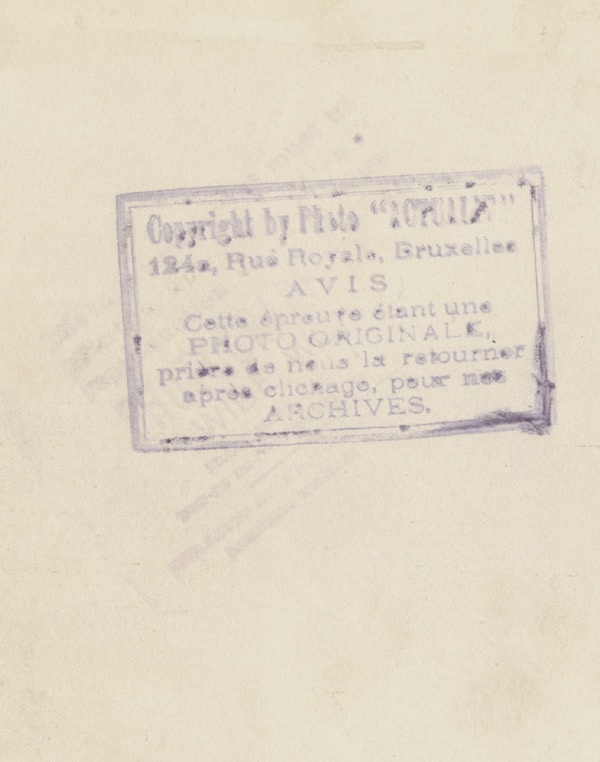 Copyright by Photo "ACTUALIT"
124a, Rue Royale, Bruxelles
AVIS
Cette épreuve étant une
PHOTO ORIGINALE,
prière de nous la retourner
après clichage, pour nos
ARCHIVES.